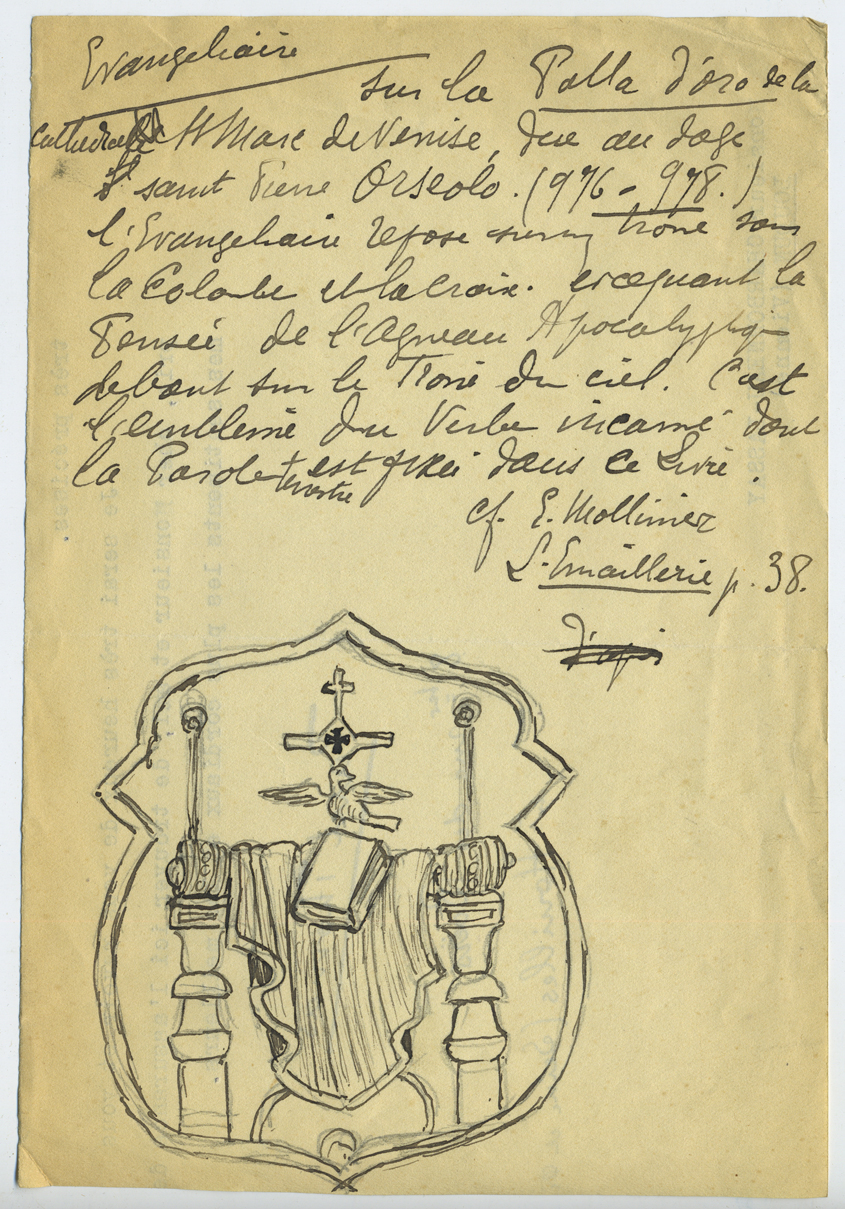 Evangeliaire
sur la Palla d'oro de la
cathedrale St Marc de Venise, due au doge
saint Pierre Orseolo. (976 - 978.)
l'Evangeliaire repose sur un trone sous
la Colombe et la croix. evoquant la
Pensée de l'Agneau Apocalyptique
debout sur le Trone du ciel. C'est
l'embleme du Verbe incarné dont
la Parole terrestre est fixée dans ce Livre.
cf. E. Mollinier
L'Emaillerie p. 38.